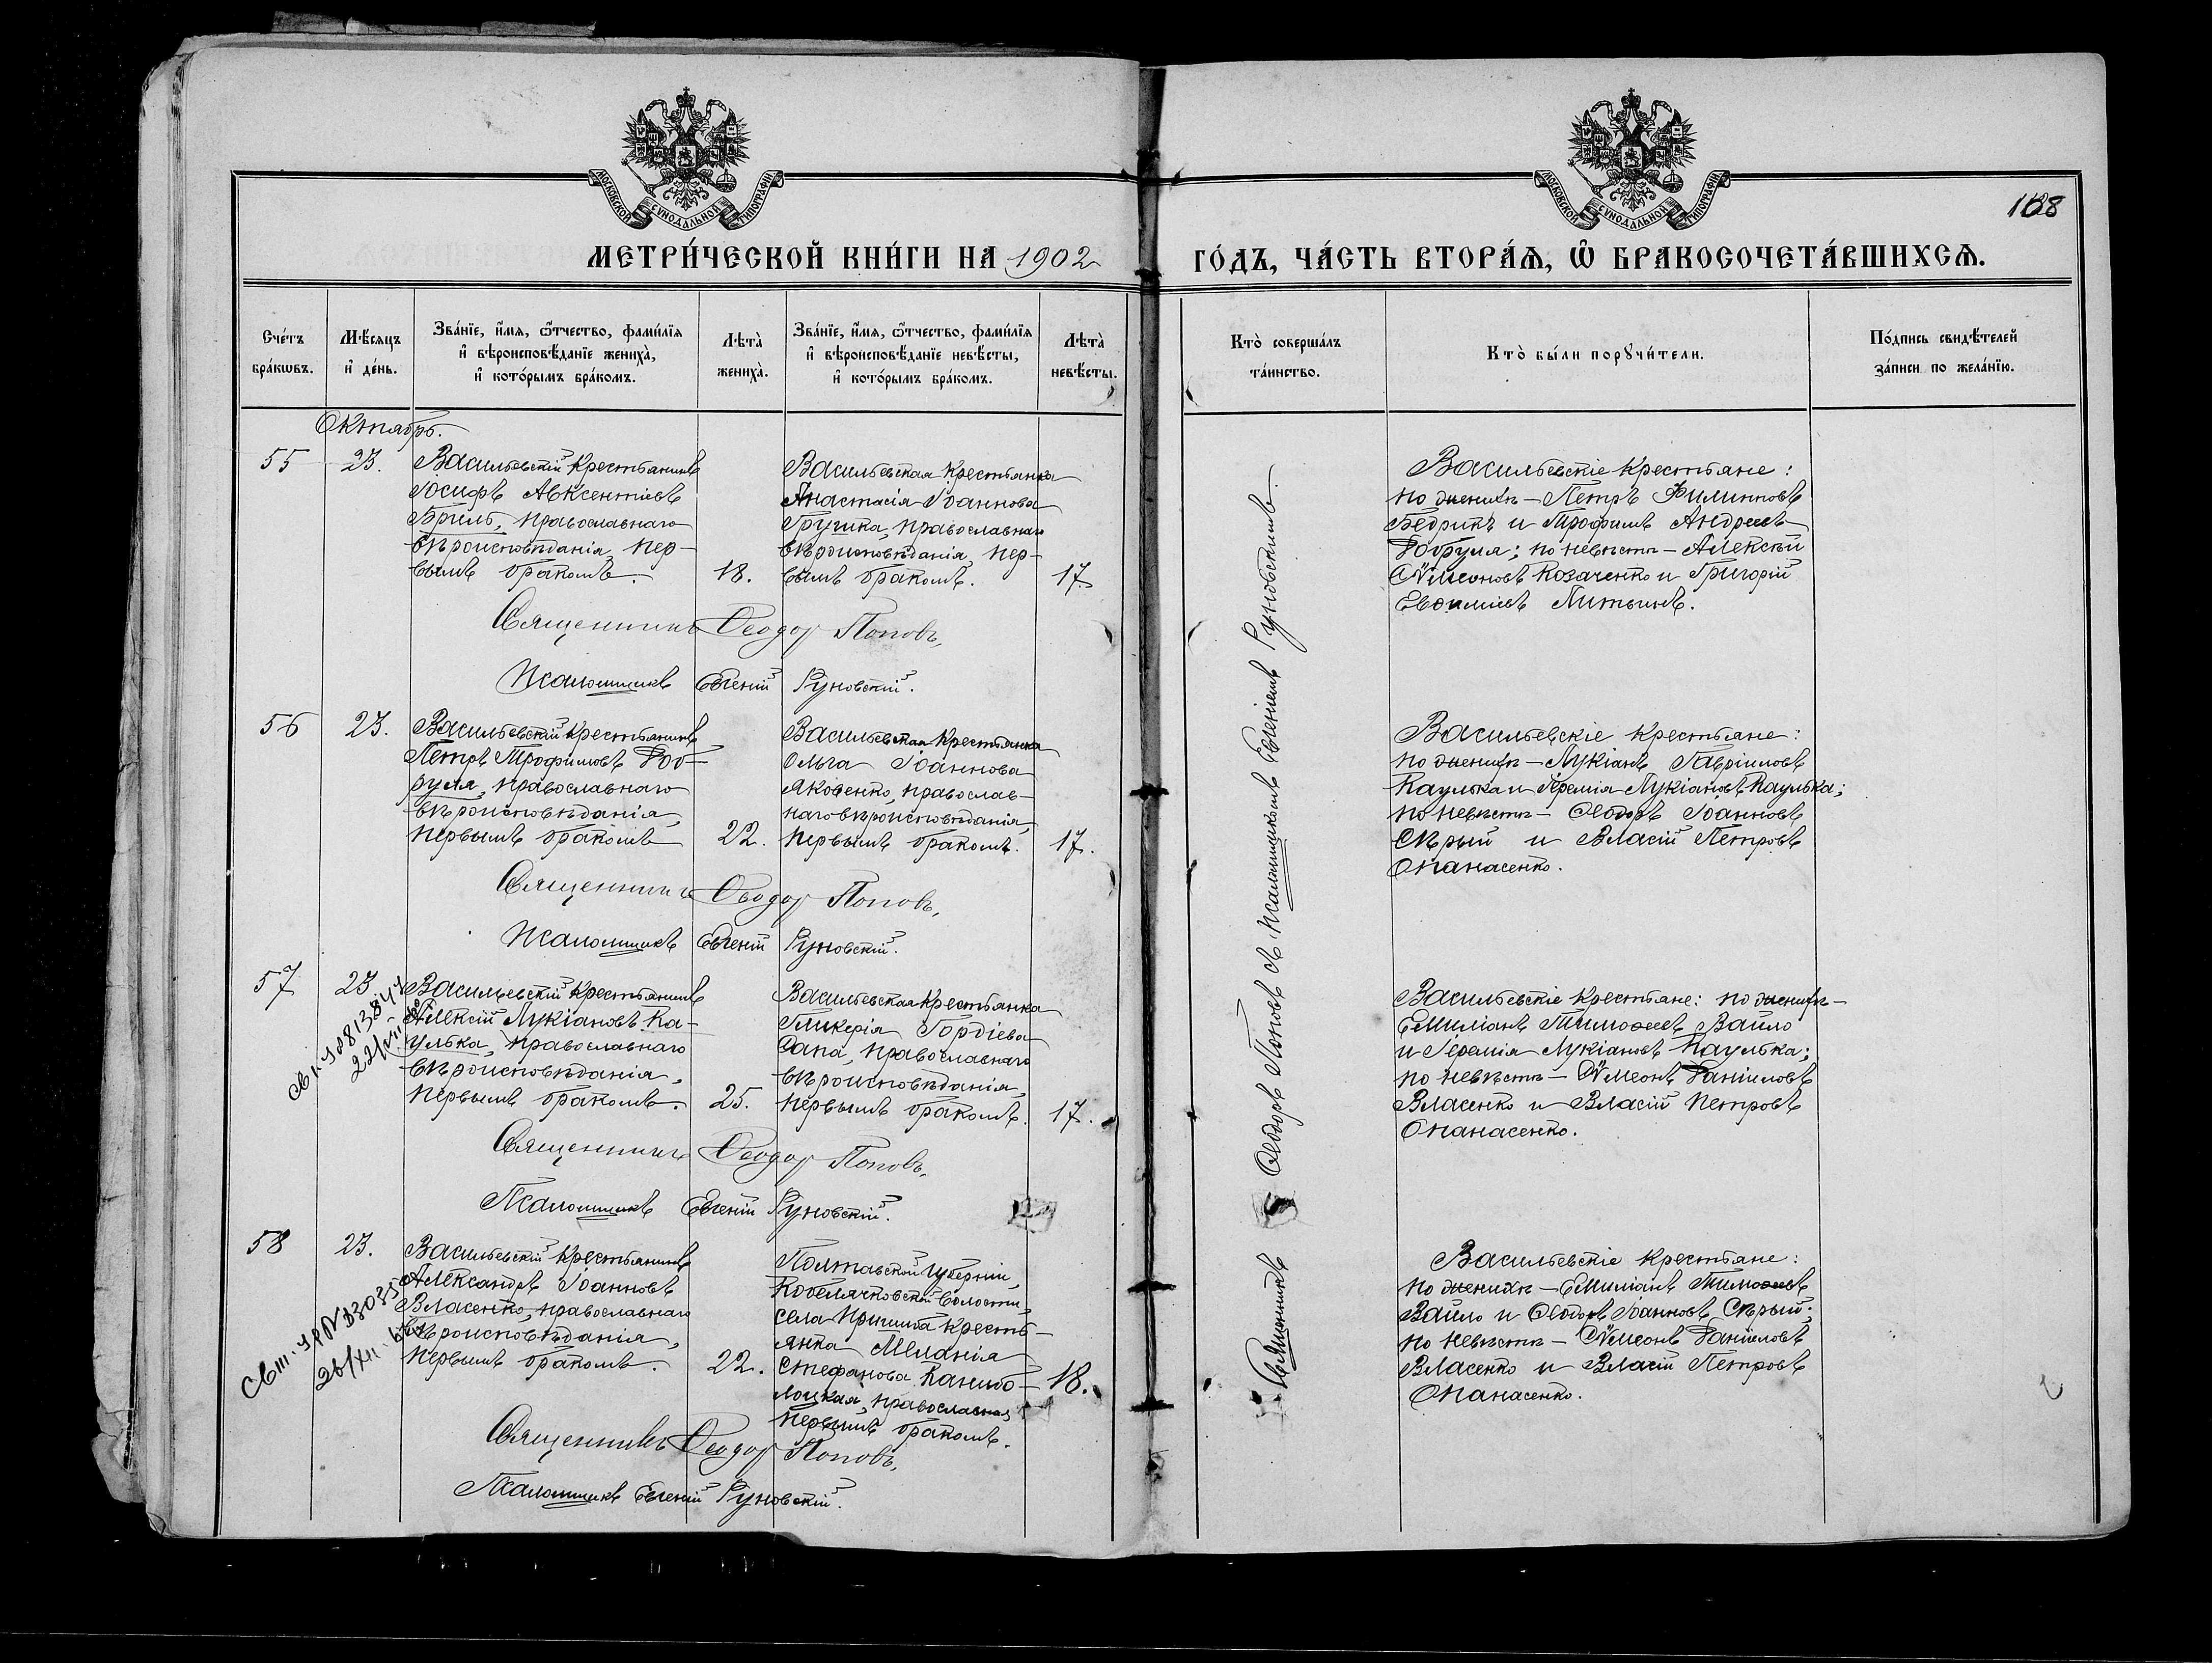 МОСКОВСКОЙ СѴНОДАЛЬНОЙ ТИПОГРАФІИ
МОСКОВСКОЙ СѴНОДАЛЬНОЙ ТИПОГРАФІИ
168
МЕТРИ́ЧЕСКОЙ КНИ́ГИ НА 1902 ГО́ДЪ, ЧА́СТЬ ВТОРА́Ѧ, Ѡ҆ БРАКОСОЧЕТА́ВШИХСѦ.
Сче́тъ бра́кѡвъ.
Мѣ́сѧцъ и҆ де́нь.
Зва́нїе, и҆́мѧ, ѻ҆́тчество, фами́лїѧ и҆ вѣроисповѣ́данїе жениха̀, и҆ кото́рымъ бра́комъ.
Лѣта̀ жениха̀.
Зва́нїе, и҆́мѧ, ѻ҆́тчество, фами́лїѧ и҆ вѣроисповѣ́данїе невѣ́сты, и҆ кото́рымъ бра́комъ.
Лѣта̀ невѣ́сты.
Кто̀ соверша́лъ та́инство.
Кто̀ бы́ли порꙋчи́тели.
По́дпись свидѣ́телей за́писи по жела́нїю.
Октябрь.
55
23.
Васильевскій крестьянинъ
Іосифъ Авксентіевъ
Бриль, православнаго
вѣроисповѣданія, пер-
вымъ бракомъ.
18.
Васильевская крестьянка
Анастасія Іоаннова
Грушка, православнаго
вѣроисповѣданія, пер-
вымъ бракомъ.
17.
Васильевскіе крестьяне:
по женихѣ — Петръ Филипповъ
Бедрикъ и Трофимъ Андреевъ
Добруля; по невѣстѣ — Алексѣй
Сѵмеоновъ Козаченко и Григорій
Евфиміевъ Литвинъ.
Священникъ Ѳеодоръ Поповъ,
Псаломщикъ Евгеній Руновскій.
56
23.
Васильевскій крестьянинъ
Петръ Трофимовъ Доб-
руля, православнаго
вѣроисповѣданія,
первымъ бракомъ
22.
Васильевская крестьянка
Ольга Іоаннова
Яковенко, православ-
наго вѣроисповѣданія,
первымъ бракомъ.
17.
Васильевскіе крестьяне:
по женихѣ — Лукіанъ Гавріиловъ
Каулька и Іеремія Лукіановъ Каулька;
по невѣстѣ — Ѳеодоръ Іоанновъ
Сѣрый и Власій Петровъ
Опанасенко.
Священникъ Ѳеодоръ Поповъ,
Псаломщикъ Евгеній Руновскій.
57
23.
Васильевскій крестьянинъ
Алексій Лукіановъ Ка-
улька, православнаго
вѣроисповѣданія,
первымъ бракомъ.
25.
Васильевская крестьянка
Гликерія Гордіева
Сапа, православнаго
вѣроисповѣданія,
первымъ бракомъ.
17.
Васильевскіе крестьяне: по женихѣ —
Емиліанъ Тимоѳеевъ Вайло
и Іеремія Лукіановъ Каулька;
по невѣстѣ — Сѵмеонъ Даніиловъ
Власенко и Власій Петровъ
Опанасенко.
Священникъ Ѳеодоръ Поповъ,
Псаломщикъ Евгеній Руновскій.
58
23.
Васильевскій крестьянинъ
Александръ Іоанновъ
Власенко, православнаго
вѣроисповѣданія,
первымъ бракомъ.
22.
Полтавской губерніи,
Кобелячковской волости,
села крестья-
янка Меланія
Стефанова
православная
первымъ бракомъ.
18.
Васильевскіе крестьяне:
по женихѣ — Емиліанъ Тимоѳеевъ
Вайло и Ѳеодоръ Іоанновъ Сѣрый;
по невѣстѣ — Сѵмеонъ Даніиловъ
Власенко и Власій Петровъ
Опанасенко.
Священникъ Ѳеодоръ Поповъ,
Псаломщикъ Евгеній Руновскій.
Священникъ Ѳеодоръ Поповъ съ псаломщикомъ Евгеніемъ Руновскимъ.